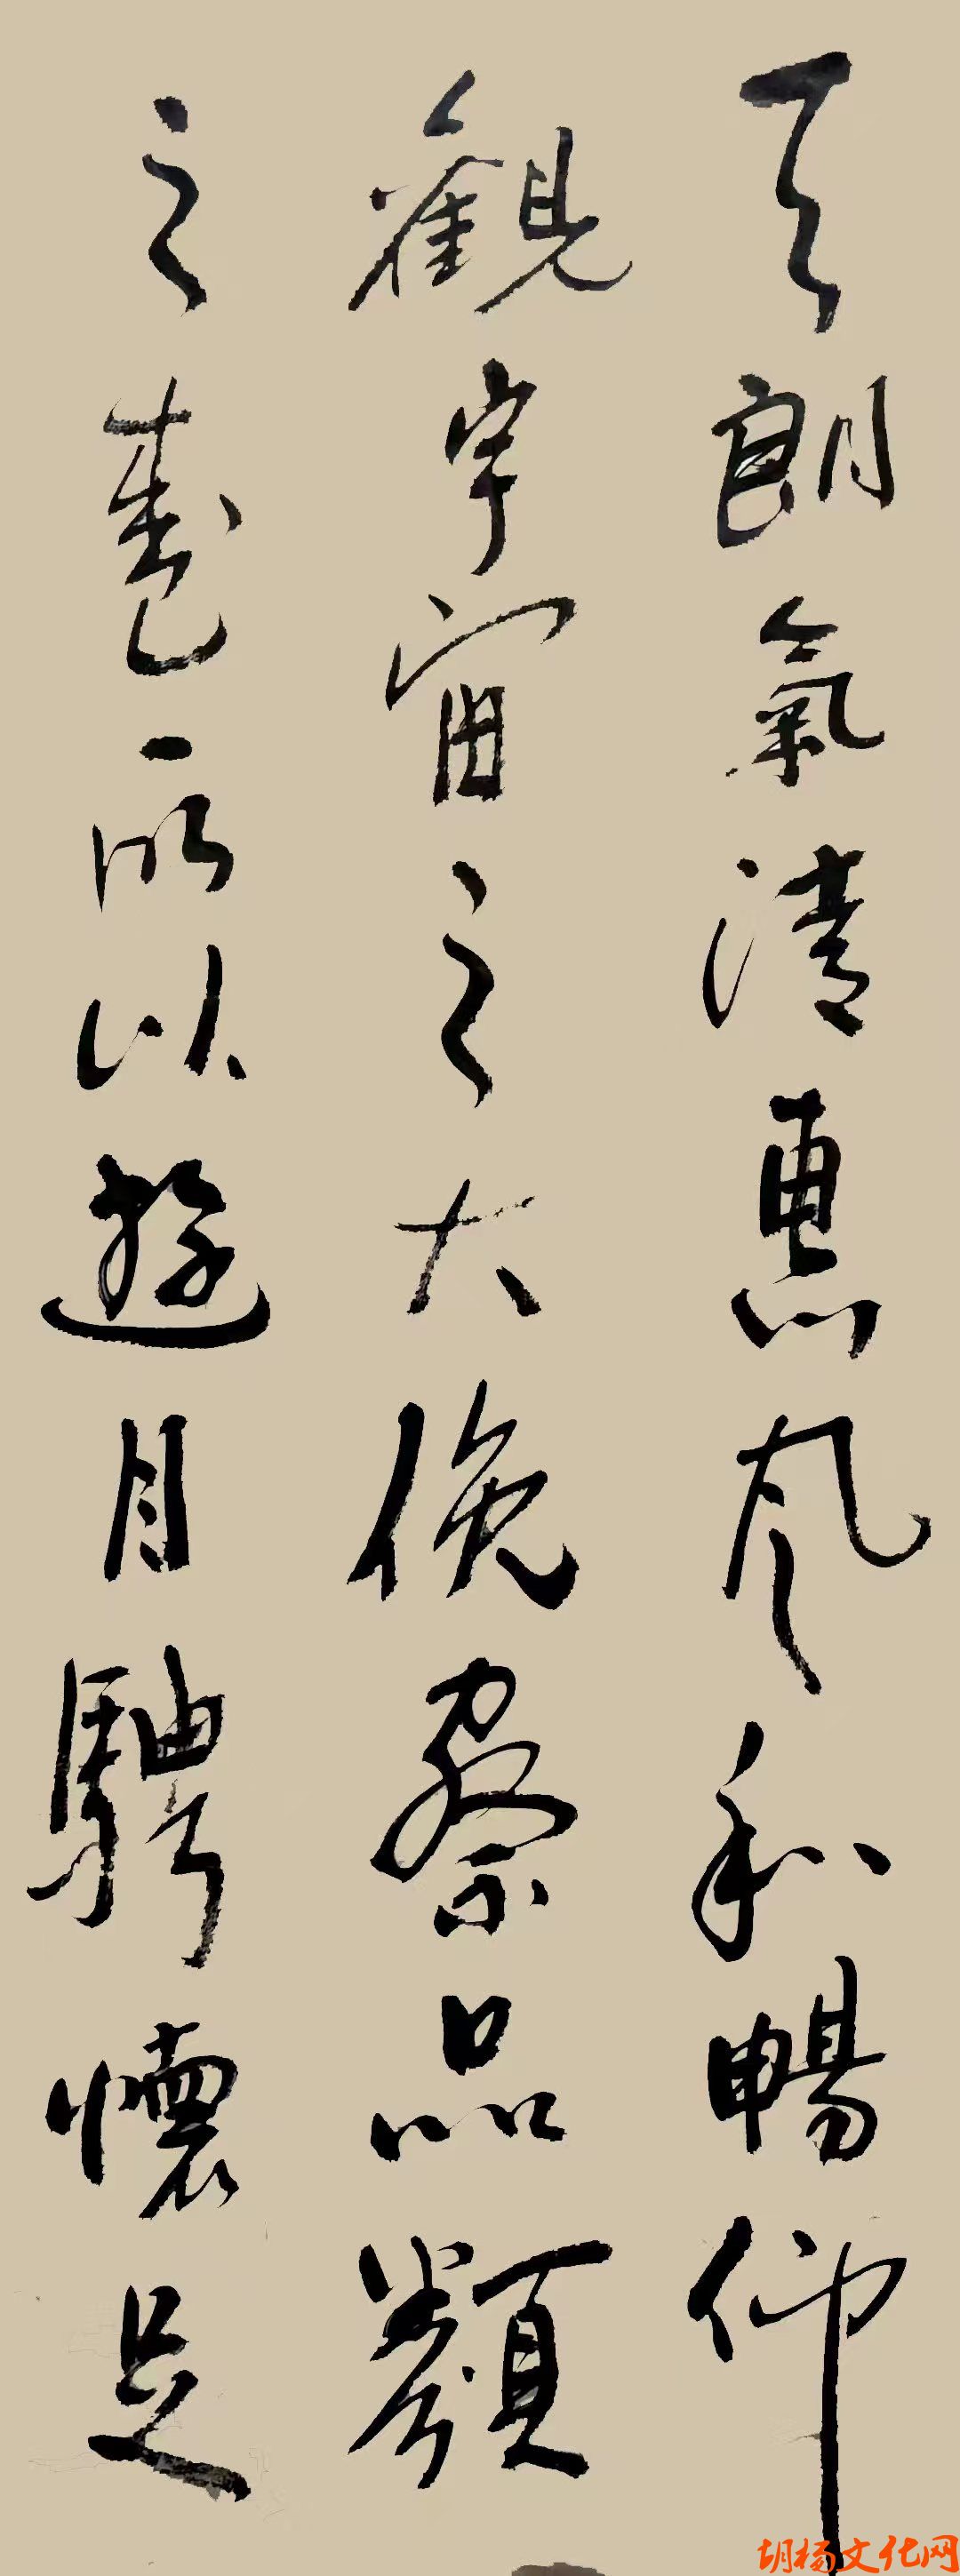 天朗氣清惠風和暢仰
觀宇宙之大俛察品類
之盛所以遊目騁懷足
胡杨文化网